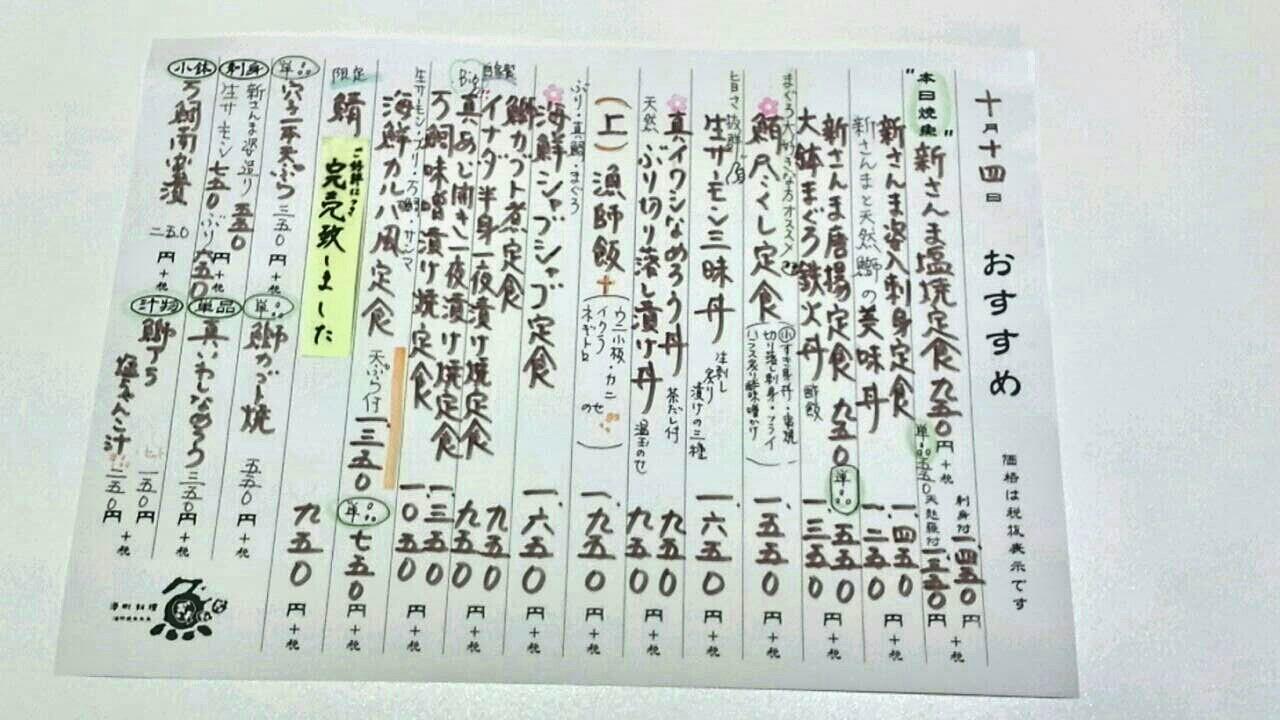 十月十四日 おすすめ
価格は税抜表示です
"本日焼魚" 新さんま塩焼定食 九五〇円+税
刺身付 一、四五〇円
単品 五五〇 天麩羅付 一、三五〇円+税
新さんま姿入刺身定食 一、四五〇
新さんまと天然鰤の美味丼 一、二五〇
新さんま唐揚定食 九五〇 単品 五五〇
大鉢まぐろ鉄火丼 酢飯 一、三五〇円+税
まぐろ大好きな方オススメ
鮪尽くし定食 一、五五〇円+税
小すき身丼・串焼
切り落し刺身・フライ
旨さ抜群
生サーモン三昧丼 生刺し 炙り 漬けの三種 一、六五〇円+税
真イワシなめろう丼 茶だし付 九五〇
天然 ぶり切り落し漬け丼 温玉のせ 九五〇円+税
ぶり・真鯛・まぐろ
(上)漁師飯 一、九五〇円+税
ウニ小板・カニ
イクラ
ネギトロ のせ
海鮮シャブシャブ定食 一、六五〇円+税
鰤カブト煮定食 九五〇
自家製 イナダ半身一夜漬け焼定食 九五〇円+税
Big 真あじ開き一夜漬け焼定食
万鯛味噌漬け焼定食 一、三五〇
生サーモン・ブリ・万鯛・サンマ
海鮮カルパ風定食 一、〇五〇円+税
天ぷら付 一、三五〇
限定 鯖
ご好評につき
完売致しました
単品 七五〇円+税
九五〇円+税
単品 穴子一本天ぷら 三五〇円+税
刺身 新さんま姿造り 五五〇
生サーモン 七五〇 ぶり 六五〇円+税
小鉢 万鯛南蛮漬 二五〇円+税
単品 鰤カブト焼 五五〇円+税
単品 真いわしなめろう 三五〇円+税
汁物 鰤アラ
塩ちゃんこ汁
セット 一五〇円+税
二五〇円+税